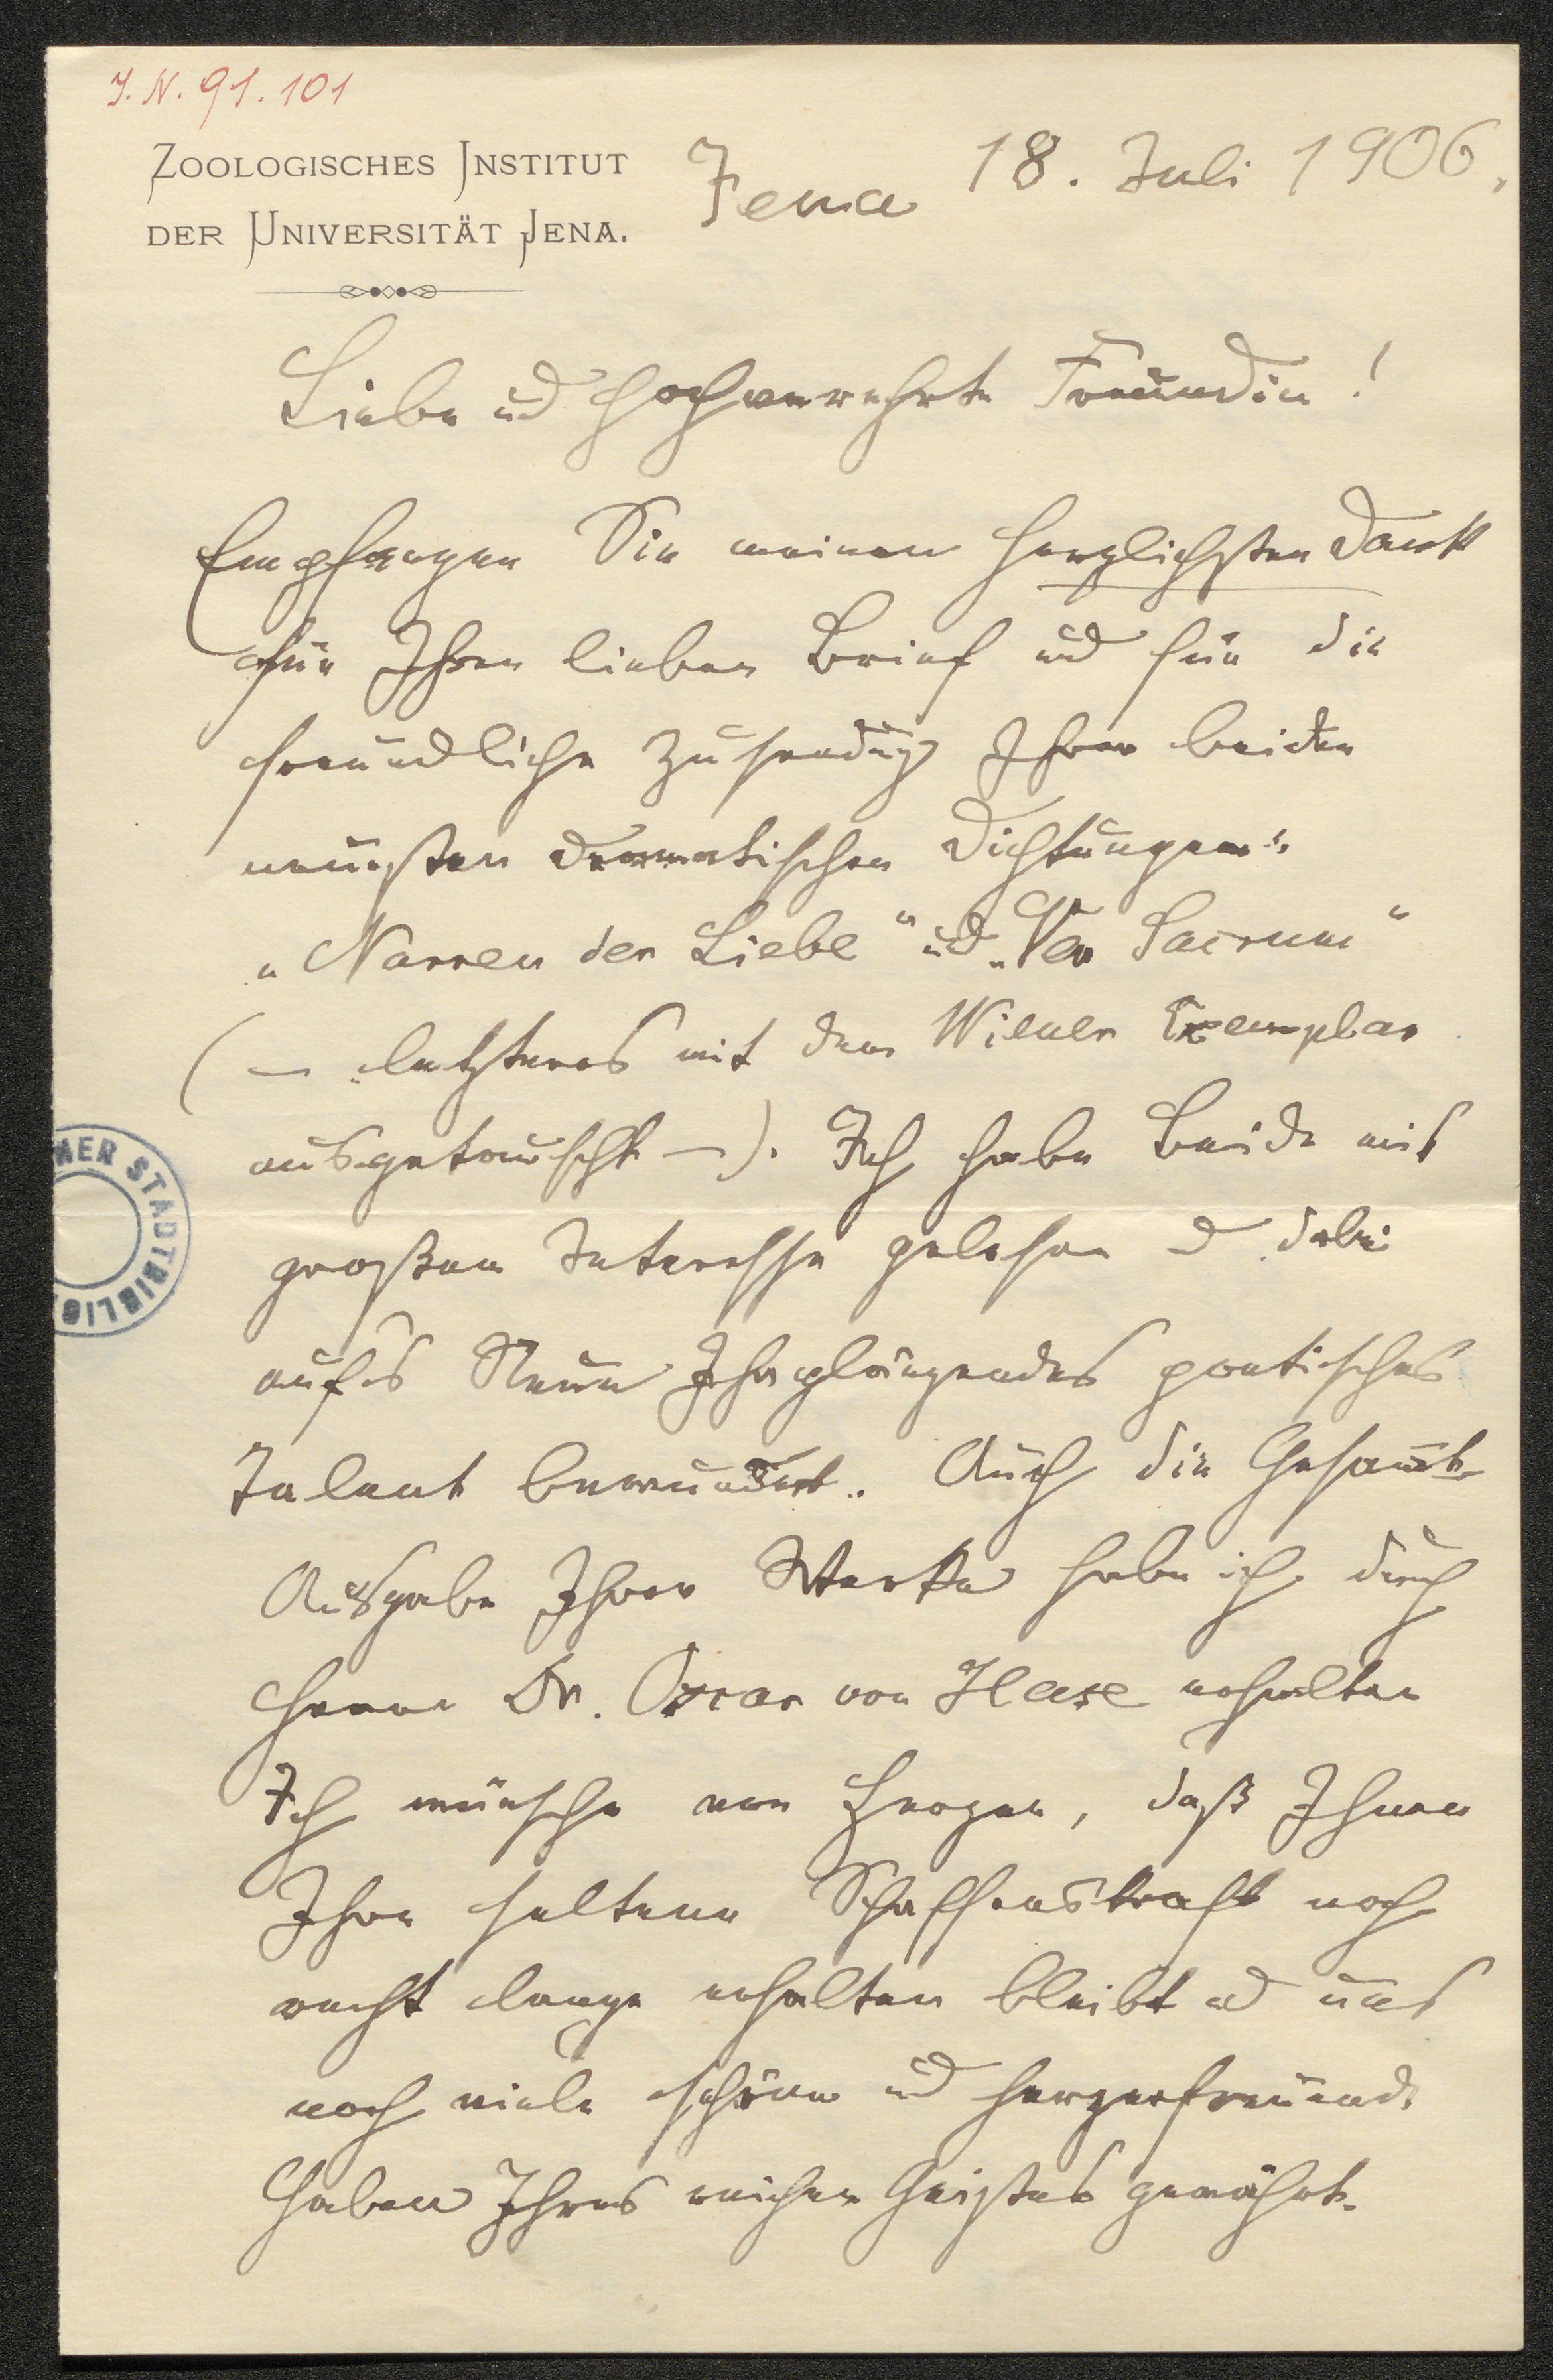 J. N. 91.101
ZOOLOGISCHES INSTITUT
DER UNIVERSITÄT JENA.
Jena 18. Juli 1906.
Liebe ud hochverehrte Freundin!
Empfangen Sie meinen herzlichsten Dank
für Ihren lieben Brief ud für die
freundliche Zusendung Ihrer beiden
neuesten dramatischen Dichtungen:
„Narren der Liebe" ud „Ver Sacrum"
(— letzteres mit dem Wiener Exemplar
ausgetauscht —). Ich habe Beide mit
großem Interesse gelesen ud dabei
auf's Neue Ihr glänzendes poetisches
Talent bewundert. Auch die Gesamt-
Ausgabe Ihrer Werke habe ich durch
Herrn Dr. Oscar von Hase erhalten
Ich wünsche von Herzen, daß Ihnen
Ihre seltene Schaffenskraft noch
recht lange erhalten bleibt ud uns
noch viele schöne ud herzerfreuende
Gaben Ihres reichen Geistes gewährt.
NER STADTBIBLIO